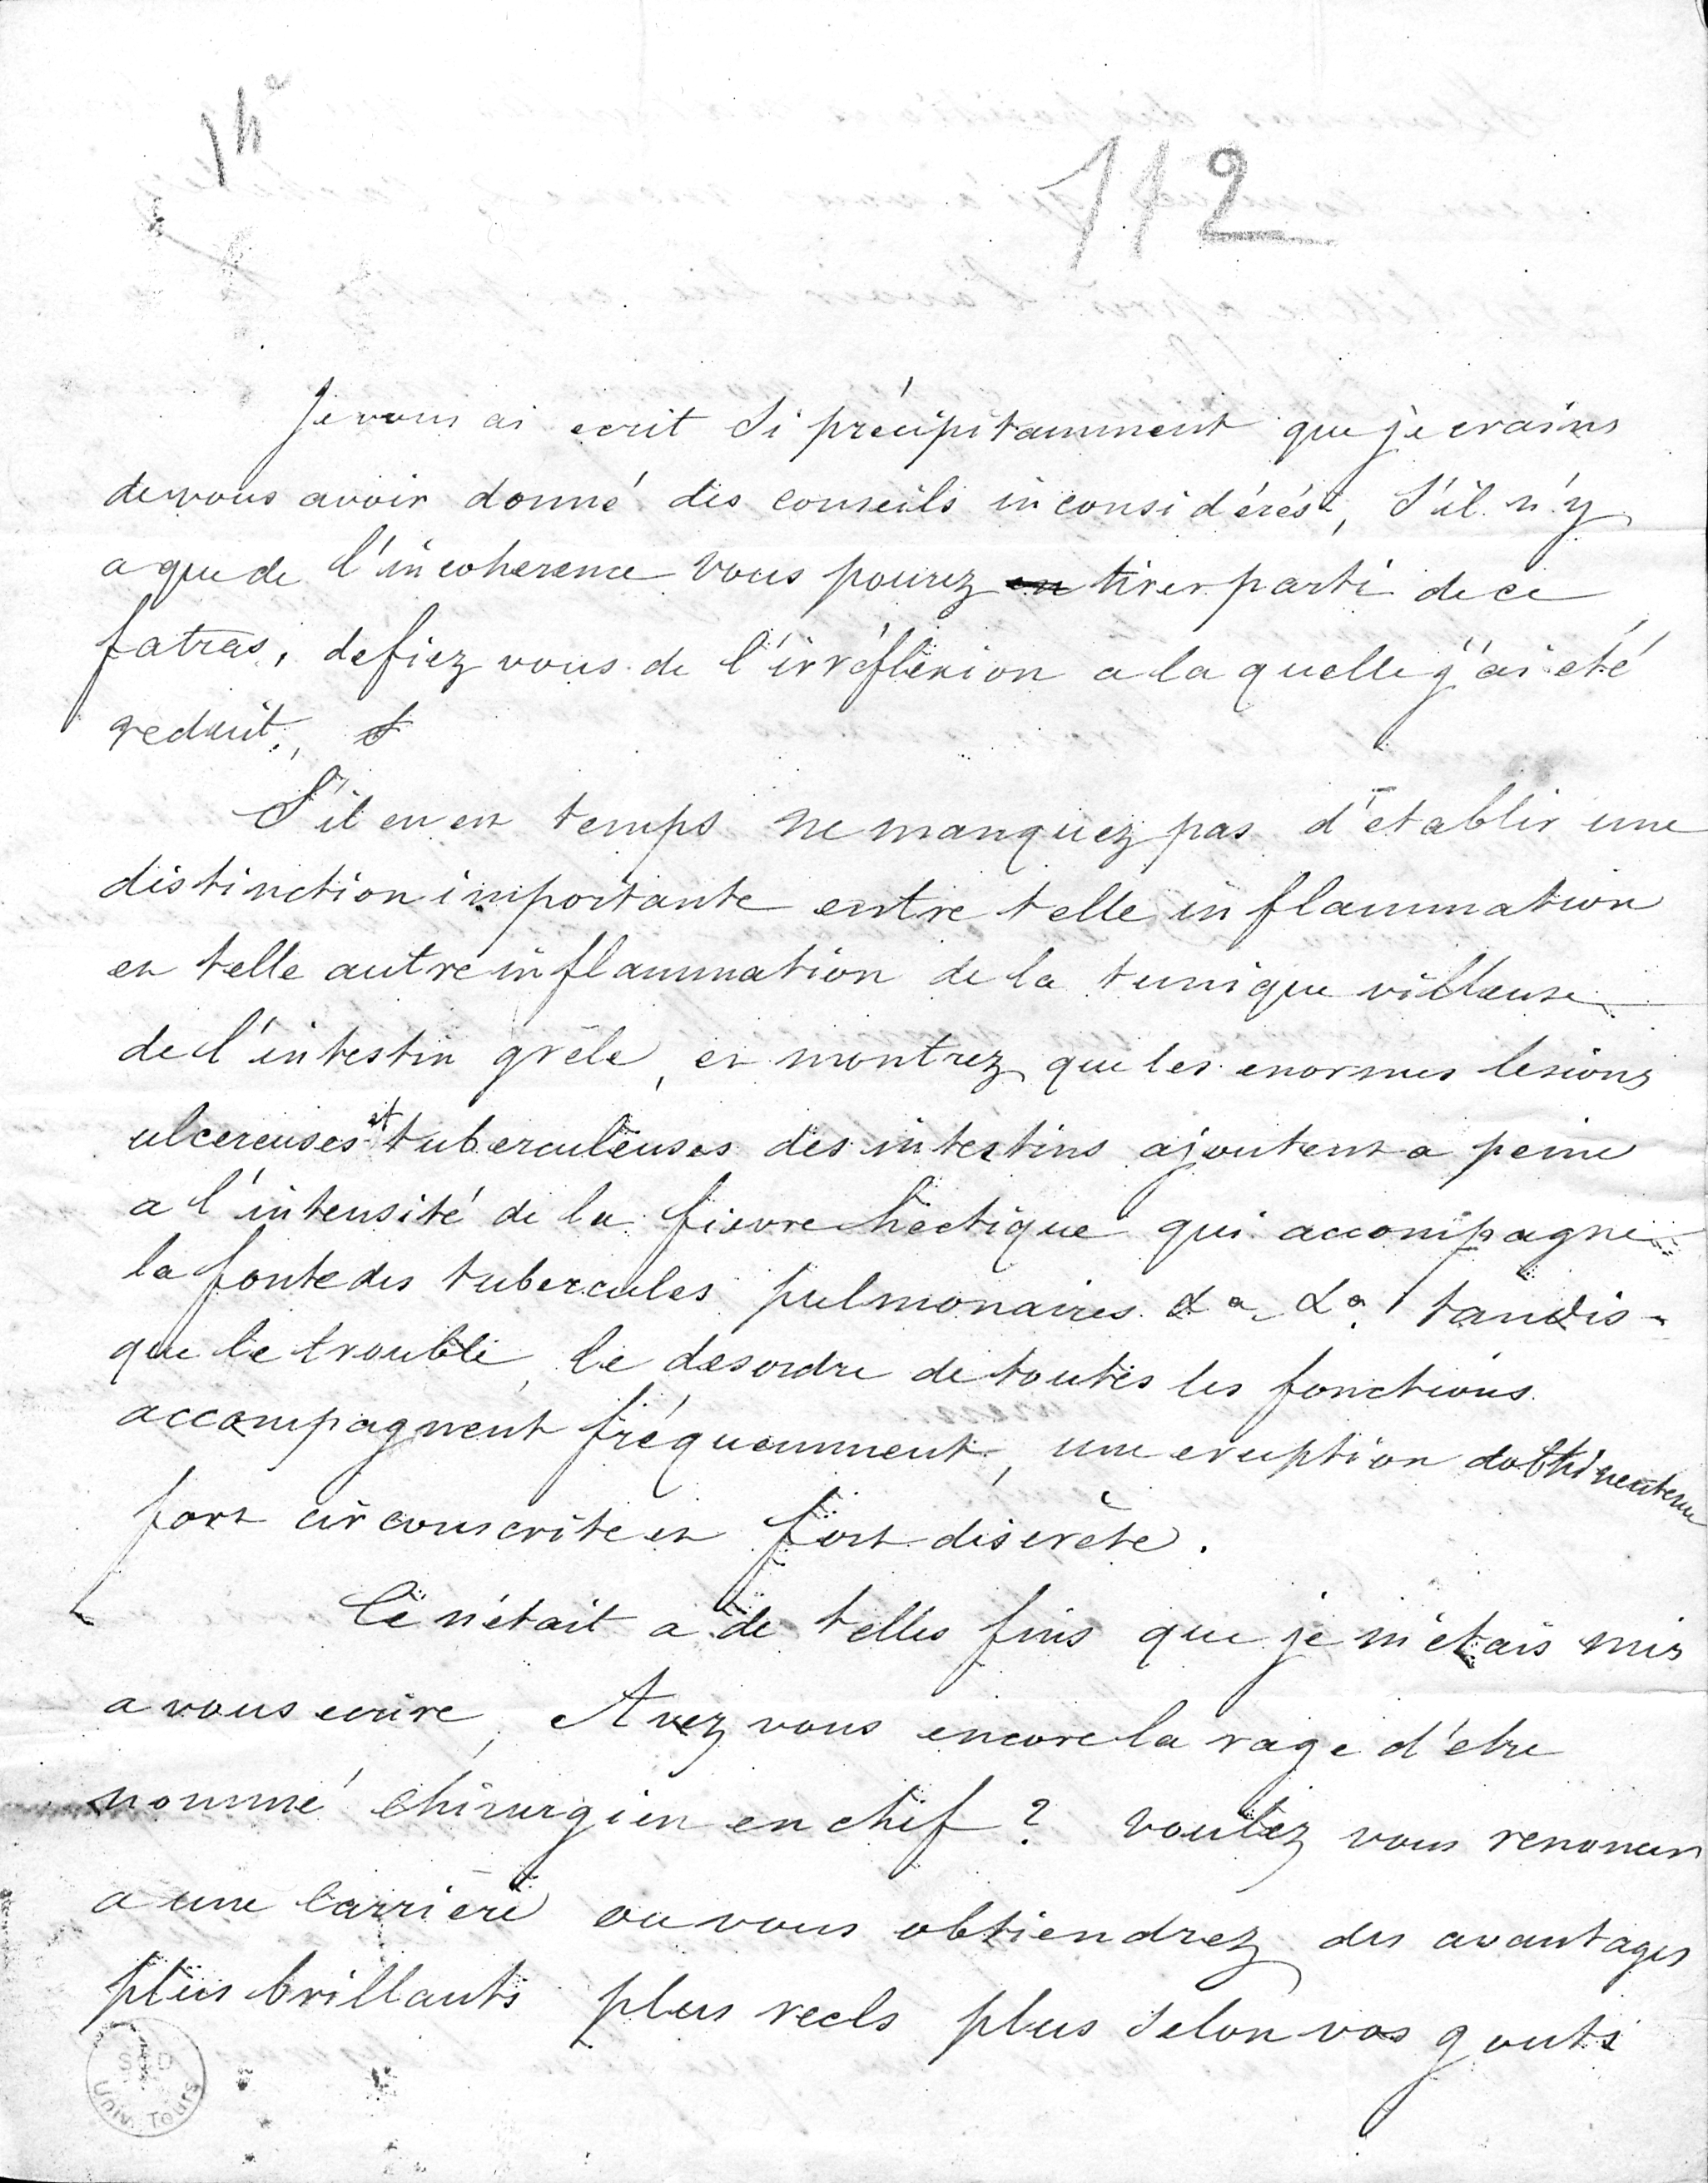 112
Je vous ai ecrit si précipitamment que je crains
de vous avoir donné des conseils inconsidérés, S'il n'y
a que de l'incoherence vous pourez en tirer parti de ce
fatras, defiez vous de l'irréflexion a la quelle j'ai eté
reduit, S
S'il en est temps ne manquez pas d'etablir une
distinction importante entre telle inflammation
et telle autre inflammation de la tunique villeuse
de l'intestin grêle, et montrez que les enormes lesions
ulcereuses et tuberculeuses des intestins ajoutent a peine
a l'intensité de la fievre hectique qui accompagne
la fonte des tubercules pulmonaires &a &a tandis-
que le trouble, le desordre de toutes les fonctions
accompagnent fréquemment, une eruption dothinenterie
fort circonscrite et fort discrète.
Ce n'était a de telles fins que je m'étais mis
a vous ecrire, Avez vous encore la rage d'etre
nommé chirurgien en chef ? voulez vous renoncer
a une carrière ou vous obtiendrez des avantages
plus brillants plus reels plus selon vos gouts
SCD
Univ. Tours